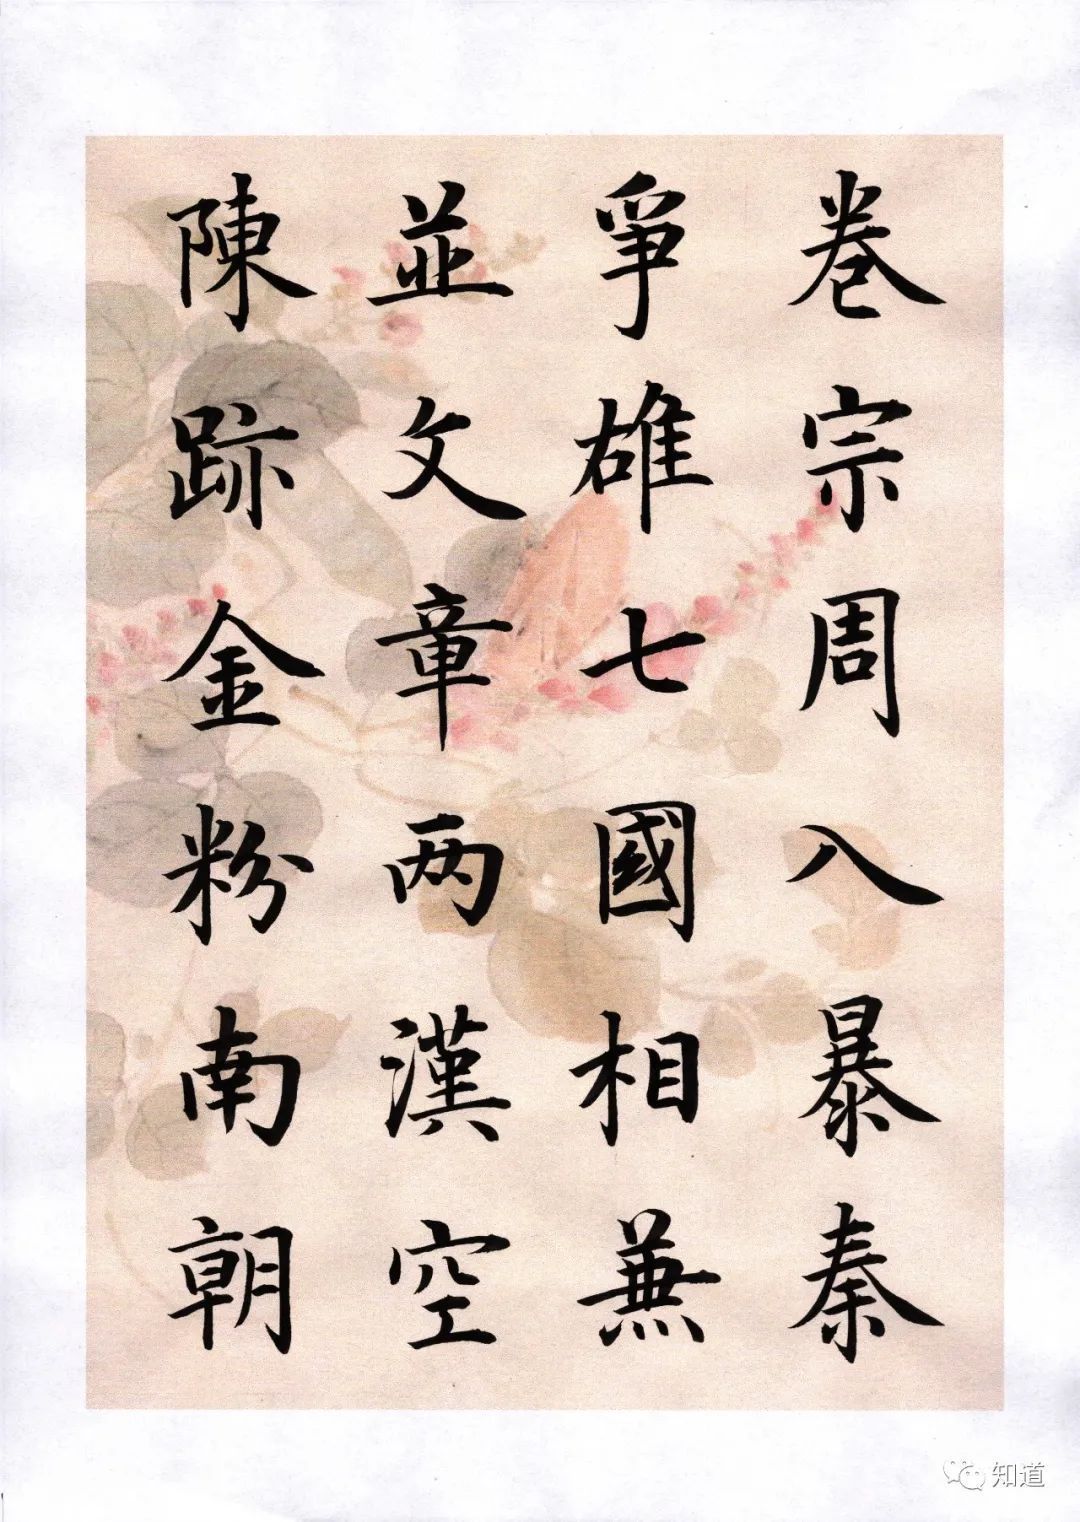 卷宗周入暴秦
爭雄七國相兼
並文章兩漢空
陳跡金粉南朝
知道